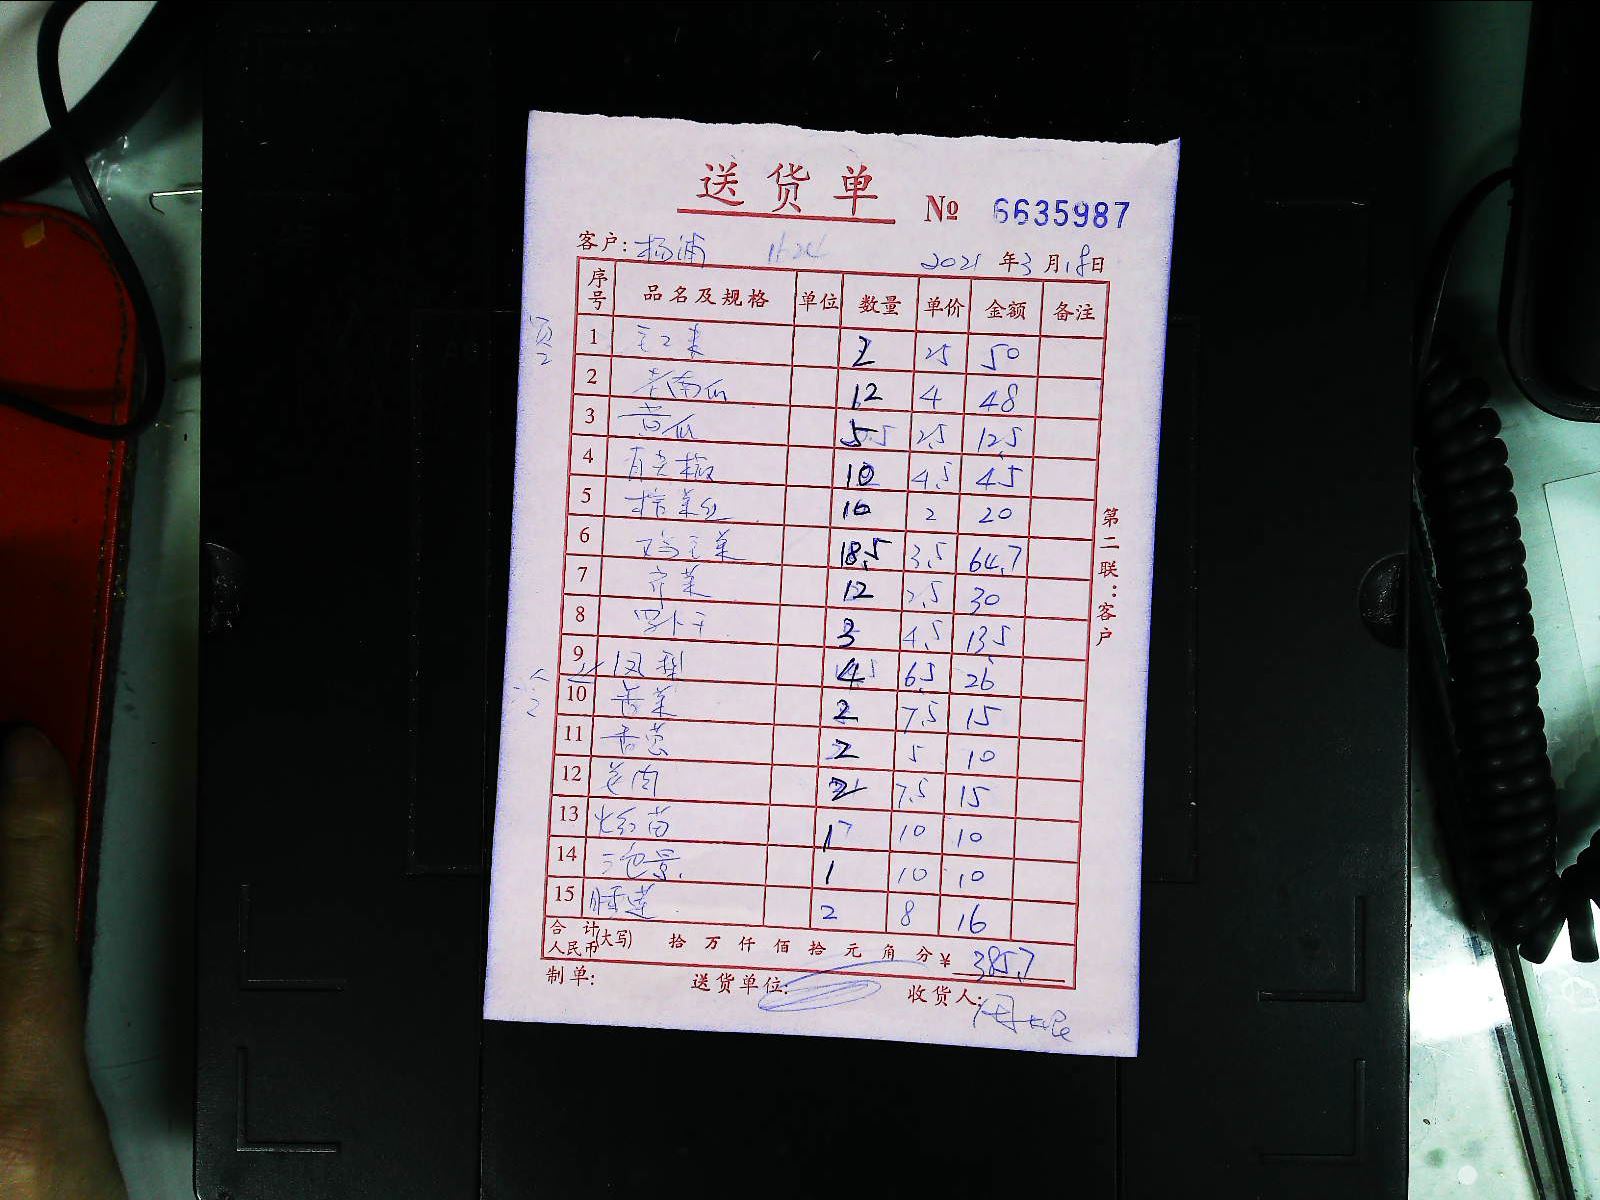 送货单 № 6635987
客户: 杨浦 2021 年 3 月 18 日
序号 品名及规格 单位 数量 单价 金额 备注
1 2 25 50
2 老南瓜 12 4 48
3 黄瓜 5 2.5 12.5
4 10 4.5 45
5 榨菜丝 10 2 20
6 鸡毛菜 18.5 3.5 64.7
7 芹菜 12 2.5 30
8 罗卜干 3 4.5 13.5
9 凤梨 4 6.5 26
10 香菜 2 7.5 15
11 香葱 2 5 10
12 2 7.5 15
13 苗 1 10 10
14 三色景 1 10 10
15 睡莲 2 8 16
合计人民币(大写) 拾 万 仟 佰 拾 元 角 分 ¥ 385.7
制单: 送货单位: 收货人:
第二联:客户